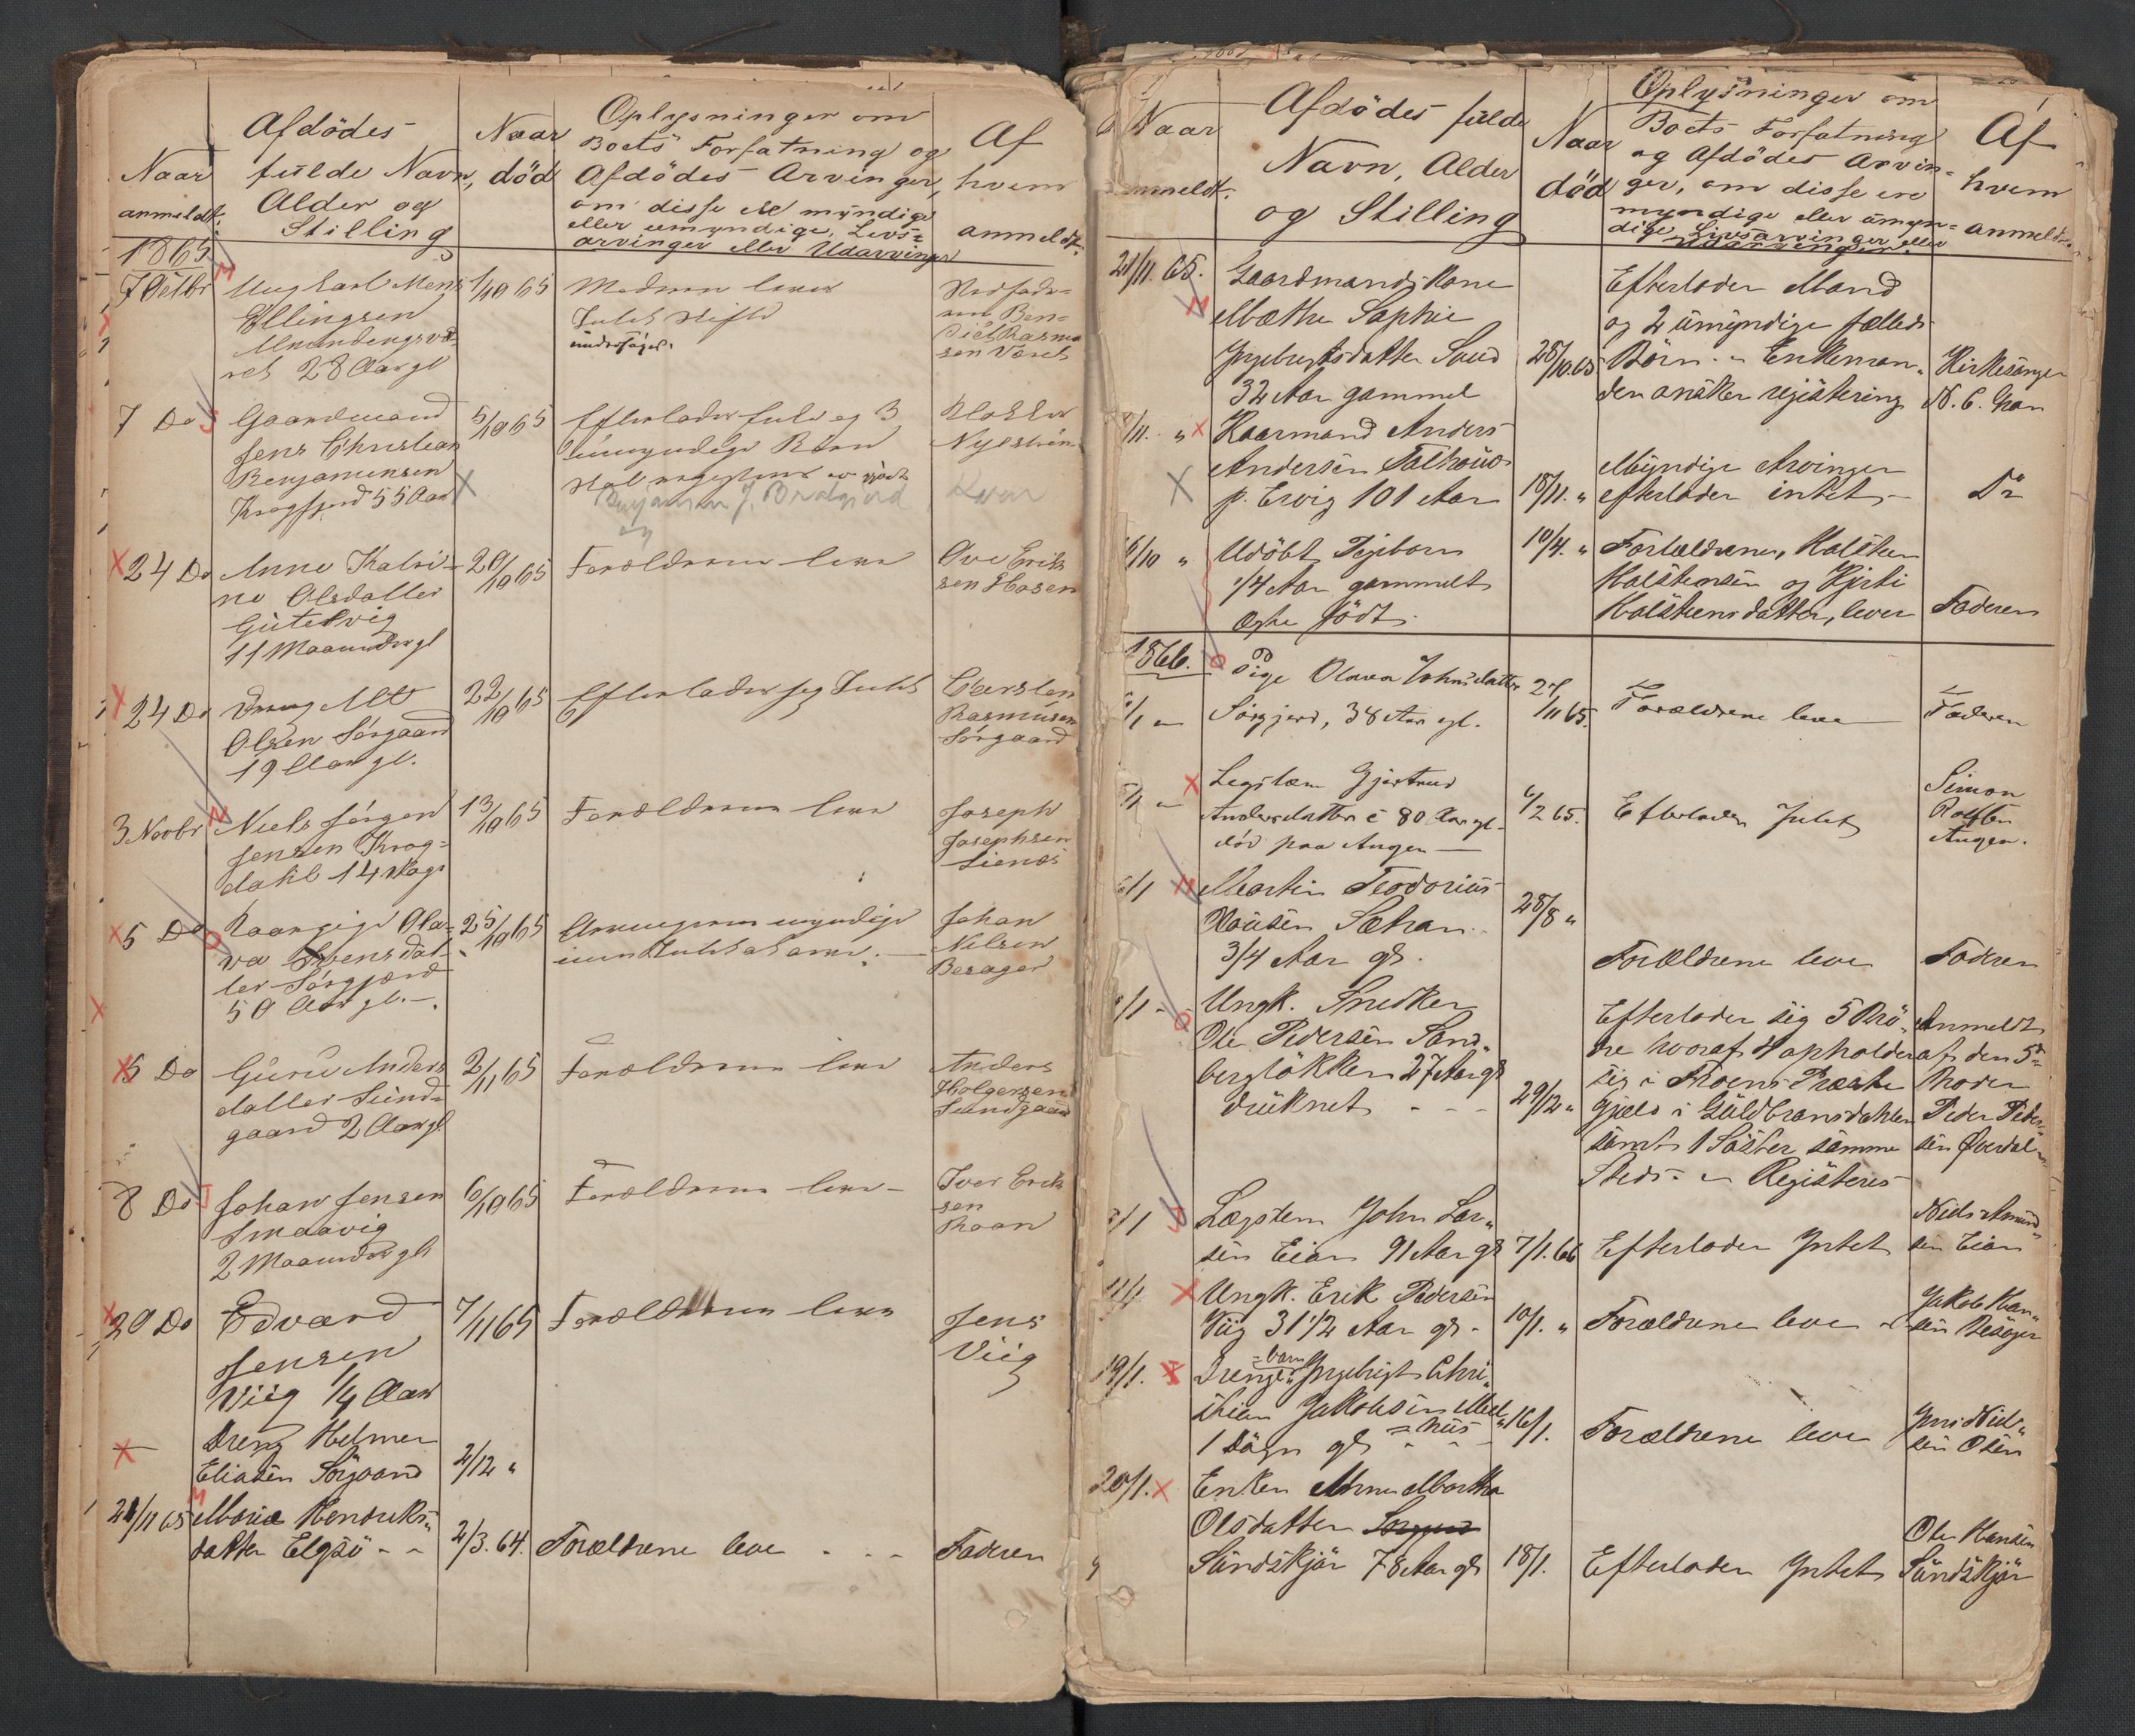 Naar
anmeldt.
Afdödes
fulde Navn,
Alder og
Stilling
Naar
död
Oplysninger om
Boets Forfatning og
Afdödes Arvinger,
om disse ere myndige
eller umyndige, Livs=
arvinger eller Udarvinger
Af
hvem
anmeldt.
1865
7 Octbr
Ungkarl Mons
Ellingsen
28 Aar gl
1/10 65
Moderen lever
Intet Skifte
7 Do
Gaardmand
Jens Christean
Benjaminsen
Kragfjord 55 Aar
5/10 65
Efterlader sig 3
umyndige Børn
Klokker
Nyestrøm
24 Do
Anne Katri=
ne Olsdatter
Gutelvig
11 Maaneder gl
20/10 65
Forældrene leve
Ove Erik
sen Hosen
24 Do
Dreng
Olsen Sørgaard
19 Aar gl.
22/10 65
Efterlader sig Intet
Carsten
Rasmusen
Sørgaard
3 Novbr
Niels Jørgen
Jensen Krog=
dahl 14 Dage
13/10 65
Forældrene leve
Joseph
Josephsen
Lienes
5 Do
Ola=
va Svensdat=
ter Sørgjerd
50 Aar gl.
25/10 65
Arvingerne myndige
Johan
Nilsen
Besager
5 Do
Guru Anders
datter Sund=
gaard 2 Aar gl
2/11 65
Forældrene leve
Anders
Holgersen
Sundgaard
8 Do
Johan Jensen
Smaavig
2 Maaneder gl
6/10 65
Forældrene leve
Iver Erik
sen
Roan
20 Do
Edvard
Jensen
Viig 1/4 Aar
7/11 65
Forældrene leve
Jens
Viig
Dreng Helmer
Eliasen Sörgaard
2/12 "
21/11 65
Maria Hendriks=
datter Elgsö - -
2/3. 64.
Forældrene leve - - -
Faderen
Naar
anmeldt.
Afdödes fulde
Navn, Alder
og Stilling
Naar
död
Oplysninger om
Boets Forfatning
og Afdödes Arvin=
ger, om disse ere
myndige eller umyn=
dige Livsarvinger eller
Udarvinger
Af
hvem
anmeldt.
21/11. 65.
Gaardmandskone
Mæthe Sophie
Ingebrigtsdatter Sund
32 Aar gammel
28/10.65
Efterlader Mand
og 2 umyndige fælleds
Börn. - Enkeman=
den önsker registering
Kirkesanger
N. C. Gran
Kaarmand Anders
Andersen Talhous
p. Ervig 101 Aar
18/11. "
Myndige Arvinger
efterlader intet -
Do
16/10 "
Udöbt Pigebarn
1/4 Aar gammelt
Ægte födt.
10/4. "
Forældrene, Halsten
Halstensen og Kjirsti
Halstensdatter, lever
Faderen
1866.
Pige Olava Johnsdatter
Sörgjerd, 38 Aar gl.
Forældrene leve
Faderen
Legslem Gjertrud
Andersdatter 80 Aar gl.
död paa Angen -
6/2 65.
Efterlader Intet
Simon
Angen.
Martin Teodorius
Sæther
3/4 Aar gl.
28/8 "
Forældrene leve
Faderen
Ungk. Snedker
Ole Pedersen Sand=
berglökken 27 Aar gl
druknet - - -
29/12 "
Efterlader sig 5 Brö=
dre hvoraf 4 opholder
sig i Froens Præste
gjæld i Guldbransdahlen
samt 1 Söster samme
Sted. - Registeres
Anmeldt
af den 5te
Broder
Peder Peder=
sen Overdal
Lægslem John Lar=
sen Eian 91 Aar gl
7/1. 66
Efterlader Intet
Niels Amund=
sen Eian
Ungk. Erik Pedersen
Viig 31 1/2 Aar gl.
10/1. "
Forældrene leve
Jakob Han=
sen Besager
19/1.
Drenge=barn Ingebrigt Chri=
stian Jakobsen Mel=
=huus
1 Dögn gl - - -
16/1.
Forældrene leve
Jens Niel=
sen Osen
20/1.
Enken Anne Martha
Olsdatter
Sundskjær 78 Aar gl
18/1.
Efterlader Intet
Ole Hansen
Sundskjær